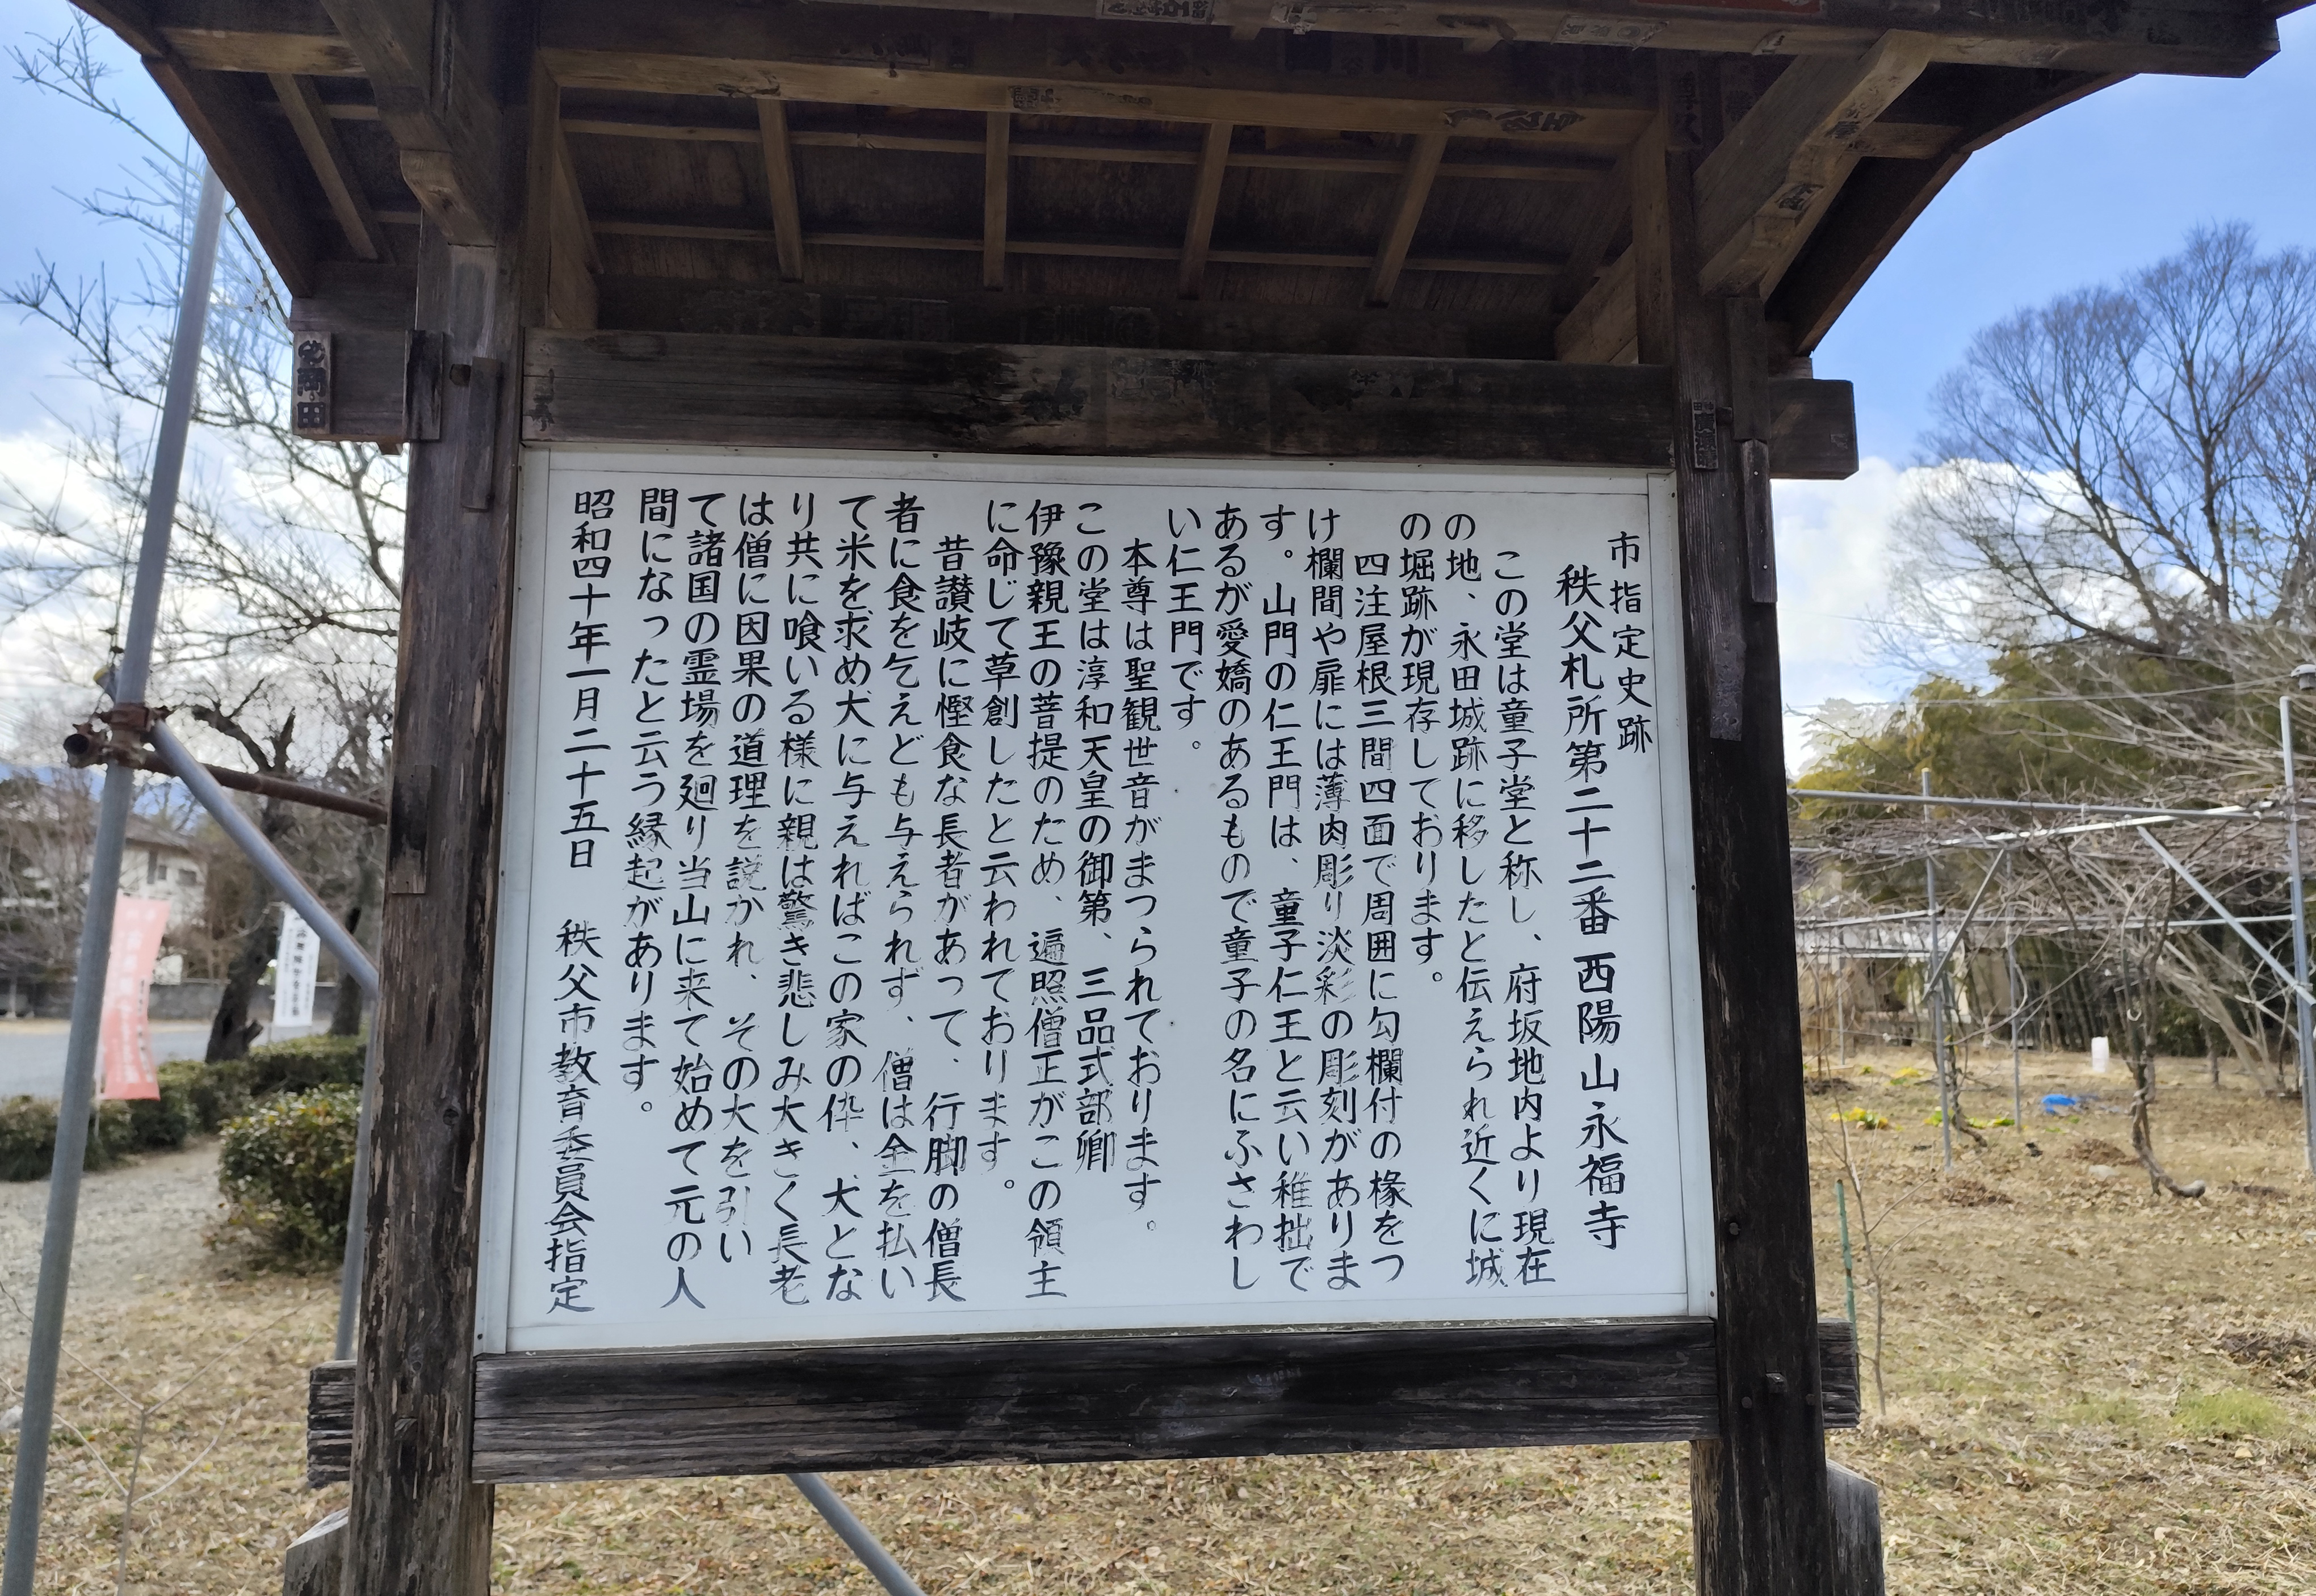 市指定史跡
秩父札所第二十二番 西陽山永福寺
この堂は童子堂と称し、府坂地内より現在
の地、永田城跡に移したと伝えられ近くに城
の堀跡が現存しております。
四注屋根三間四面で周囲に勾欄付の椽をつ
け欄間や扉には薄肉彫り淡彩の彫刻がありま
す。山門の仁王門は、童子仁王と云い稚拙で
あるが愛嬌のあるもので童子の名にふさわし
い仁王門です。
本尊は聖観世音がまつられております。
この堂は淳和天皇の御第、三品式部卿
伊豫親王の菩提のため、遍照僧正がこの領主
に命じて草創したと云われております。
昔讃岐に慳食な長者があって、行脚の僧長
者に食を乞えども与えられず、僧は金を払い
て米を求め犬に与えればこの家の伜、犬とな
り共に喰いる様に親は驚き悲しみ大きく長老
は僧に因果の道理を説かれ、その犬を引い
て諸国の霊場を廻り当山に来て始めて元の人
間になったと云う縁起があります。
昭和四十年一月二十五日 秩父市教育委員会指定